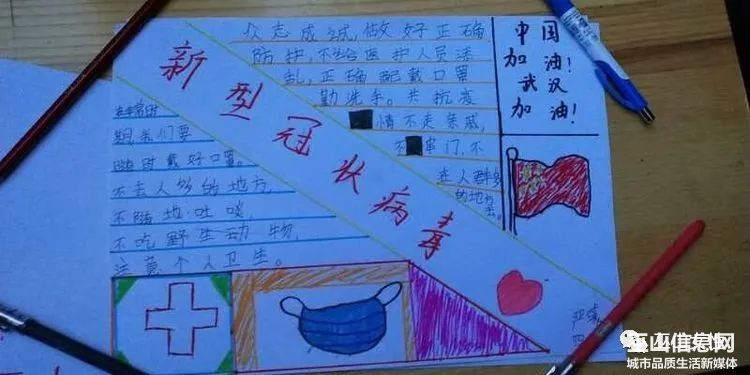 众志成城,做好正确
防护,不给医护人员添
乱,正确配戴口罩
勤洗手。共抗疫
情不走亲戚,
不串门,不
去人群多
的地方去。
中国
加油!
武汉
加油!
新型冠状病毒
在非常时
期我们要
随时戴好口罩。
不去人多的地方,
不随地吐唊,
不吃野生动物,
注意个人卫生。
玉山信息网
城市品质生活新媒体